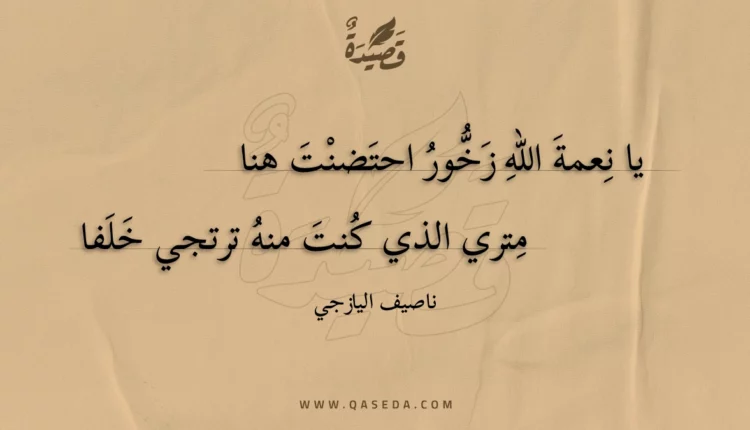 قَصِيدَةٌ
يا نِعمةَ اللهِ زَخُّورُ احتَضنْتَ هنا
مِتري الذي كُنتَ منهُ ترتجي خَلَفا
ناصيف اليازجي
WWW.QASEDA.COM